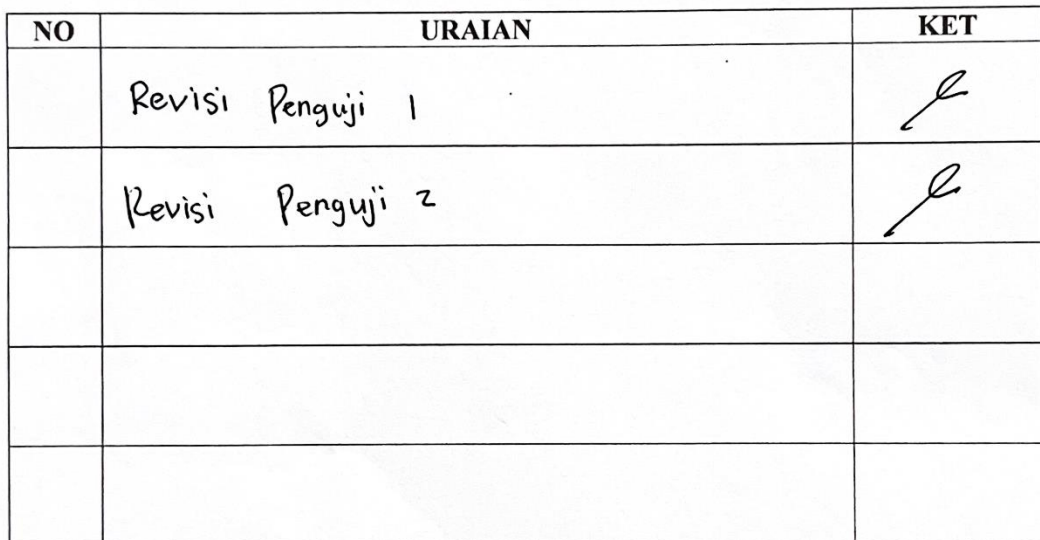 NO URAIAN KET
Revisi Penguji 1
Revisi Penguji 2